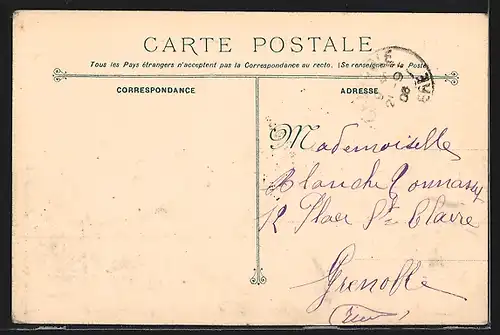 CARTE POSTALE
Tous les Pays étrangers n'acceptent pas la Correspondance au recto. (Se renseigner à la Poste)
CORRESPONDANCE
ADRESSE
Mademoiselle
Blanche
12 Place Ste Claire
Grenoble